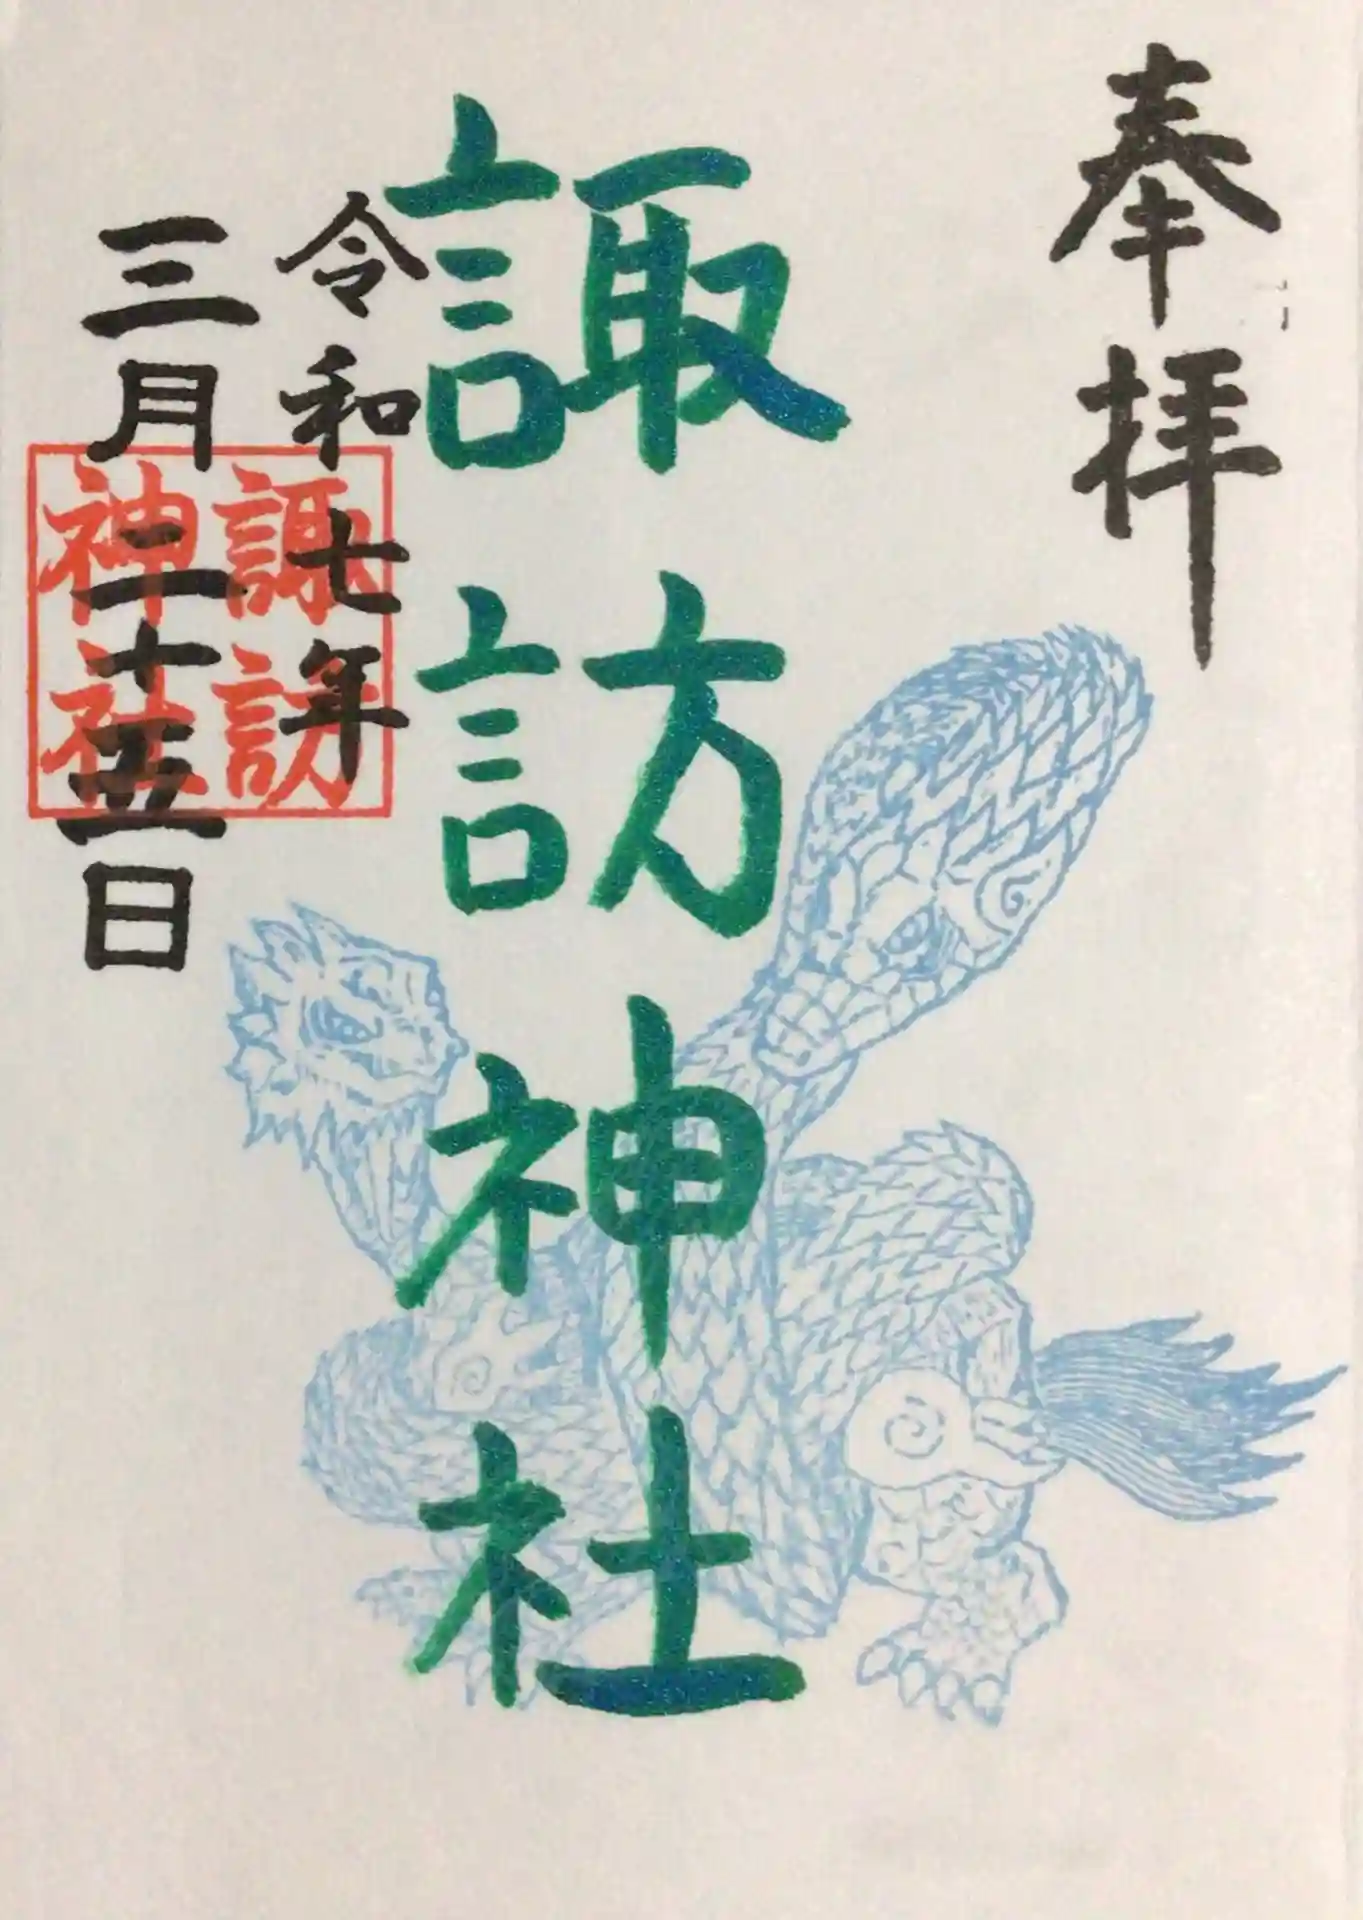 奉拝
諏訪神社
令和七年
三月二十五日
諏訪
神社